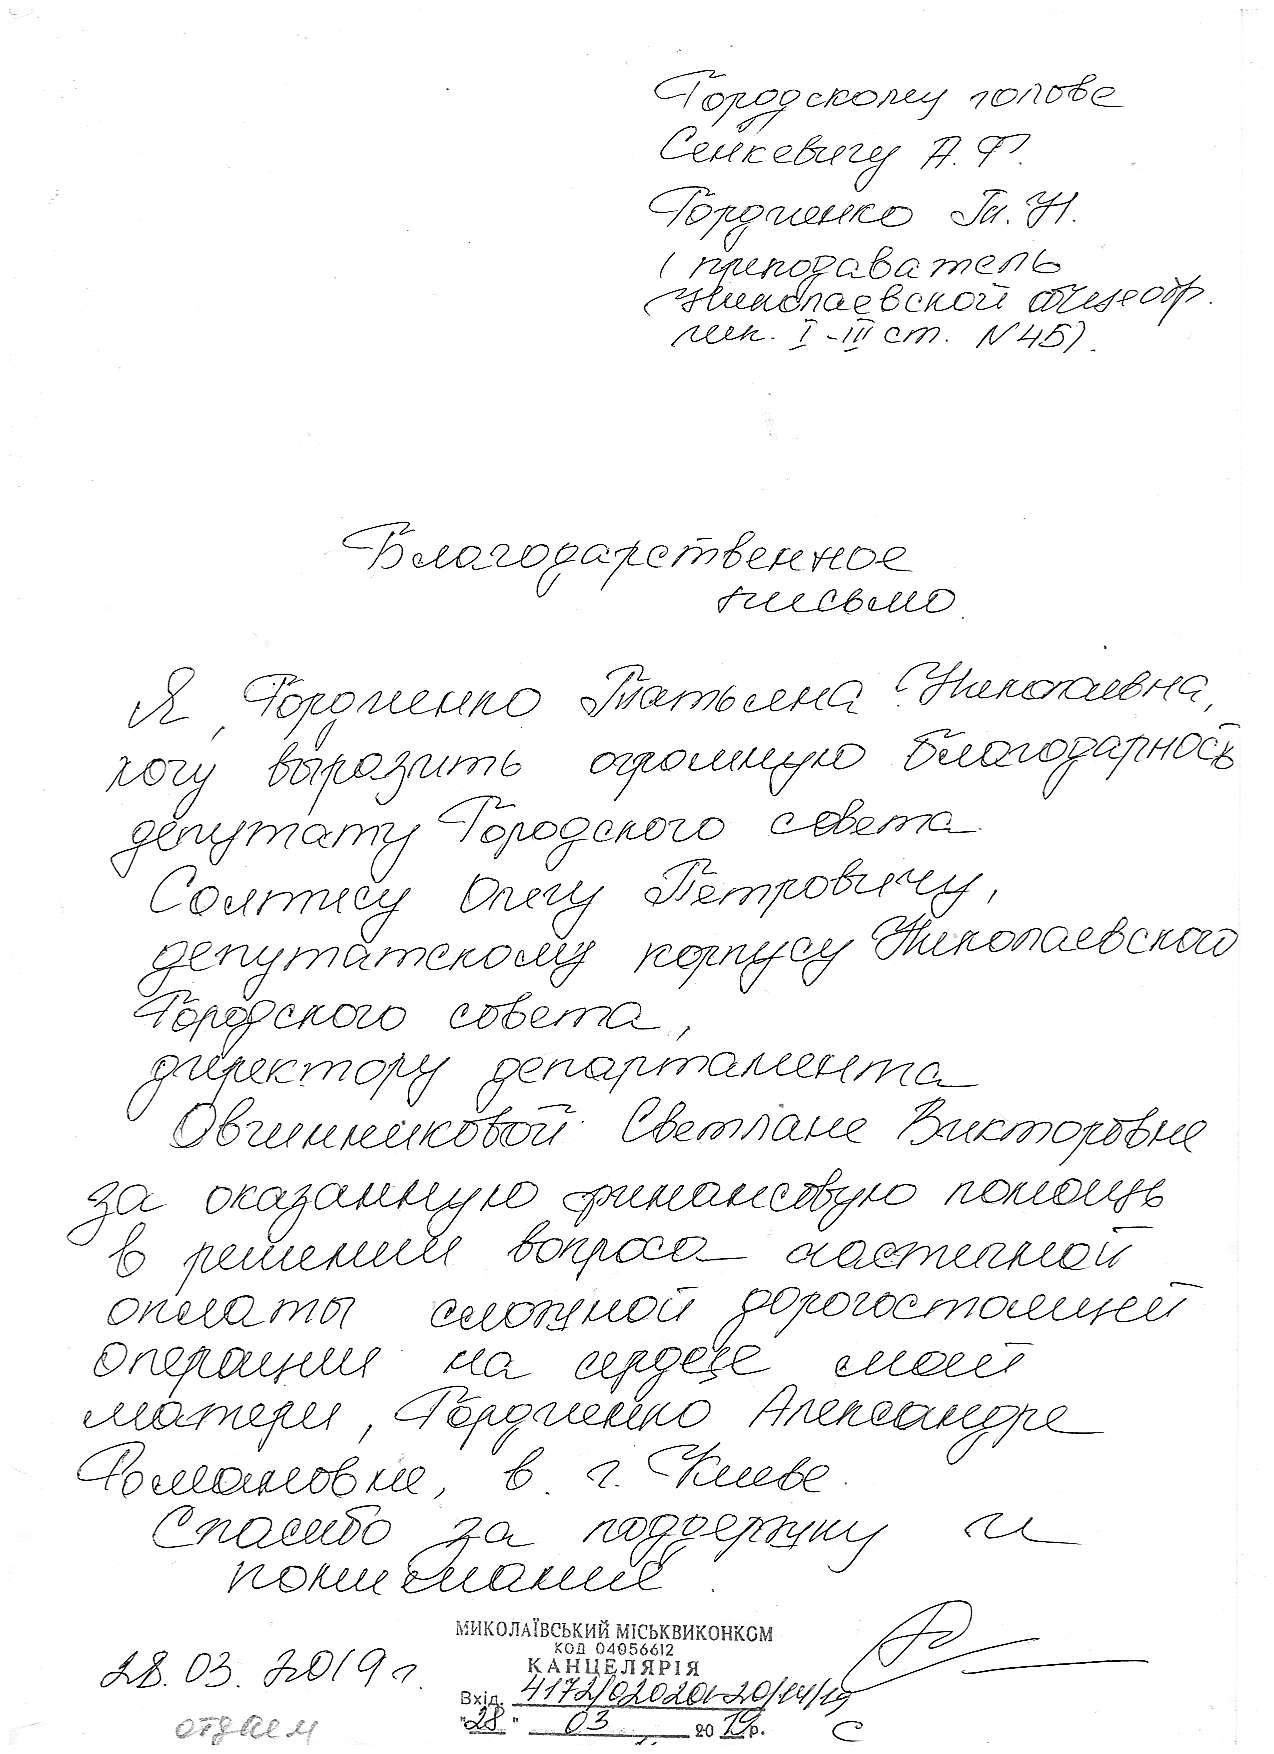 Городскому голове
Сенкевичу А. Ф.
Гордиенко Т. Н.
(преподаватель
Николаевской общеобр.
шк. I-III ст. N 45).
Благодарственное
письмо.
Я, Гордиенко Татьяна Николаевна,
хочу выразить огромную благодарность
депутату Городского совета
Солтису Олегу Петровичу,
депутатскому корпусу Николаевского
Городского совета,
директору департамента
Овчинниковой Светлане Викторовне
за оказанную финансовую помощь
в решении вопроса частичной
оплаты сложной дорогостоящей
операции на сердце моей
матери, Гордиенко Александре
Романовне, в г. Киеве.
Спасибо за поддержку и
понимание.
МИКОЛАЇВСЬКИЙ МІСЬКВИКОНКОМ
КОД 04056612
КАНЦЕЛЯРІЯ
28.03.2019 г.
Вхід. 4172/020201-20/14/19
"28" 03 2019р.